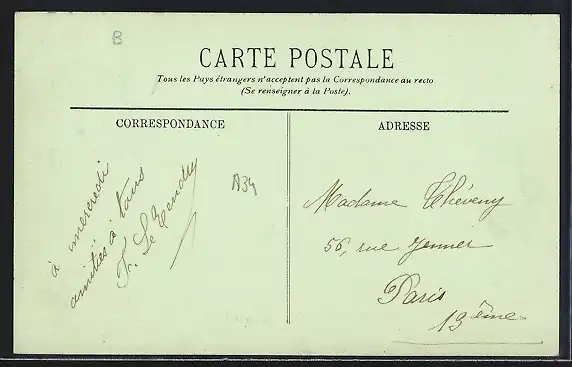 B
CARTE POSTALE
Tous les Pays étrangers n'acceptent pas la Correspondance au recto
(Se renseigner à la Poste).
CORRESPONDANCE
ADRESSE
à mercredi
amitiés à tous
F. Le
A34
Madame Théveny
56, rue Jenner
Paris
13ème